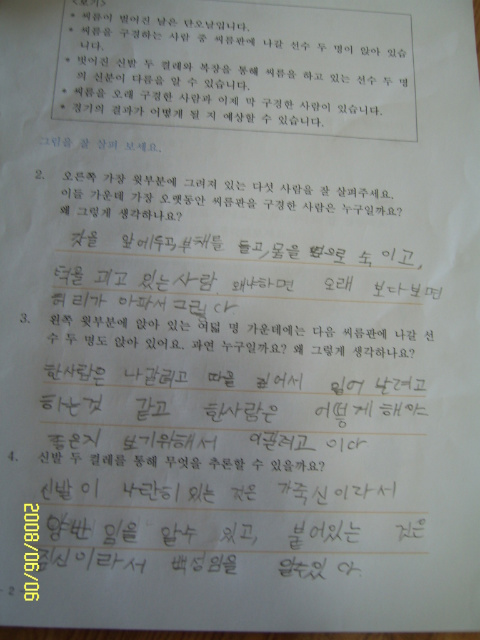 <보기>
* 씨름이 벌어진 날은 단오날입니다.
* 씨름을 구경하는 사람 중 씨름판에 나갈 선수 두 명이 앉아 있습
니다.
* 벗어진 신발 두 켤레와 복장을 통해 씨름을 하고 있는 선수 두 명
의 신분이 다름을 알 수 있습니다.
* 씨름을 오래 구경한 사람과 이제 막 구경한 사람이 있습니다.
* 경기의 결과가 어떻게 될 지 예상할 수 있습니다.
그림을 잘 살펴 보세요.
2. 오른쪽 가장 윗부분에 그려져 있는 다섯 사람을 잘 살펴주세요.
이들 가운데 가장 오랫동안 씨름판을 구경한 사람은 누구일까요?
왜 그렇게 생각하나요?
갓을 앞에두고, 부채를 들고, 몸을 앞으로 숙이고,
턱을 괴고 있는 사람 왜냐하면 오래 보다보면
허리가 아파서 그런다
3. 왼쪽 윗부분에 앉아 있는 여덟 명 가운데에는 다음 씨름판에 나갈 선
수 두 명도 앉아 있어요. 과연 누구일까요? 왜 그렇게 생각하나요?
한사람은 나갈려고 땅을 짚어서 일어 난려고
하는것 같고 한사람은 어떻게 해야
좋은지 보기위해서 이다
4. 신발 두 켤레를 통해 무엇을 추론할 수 있을까요?
신발이 나란히 있는 것은 가죽신이라서
양반 임을 알수 있고, 붙어있는 것은
짚신이라서 백성임을 알수있다.
- 2
2008/06/06